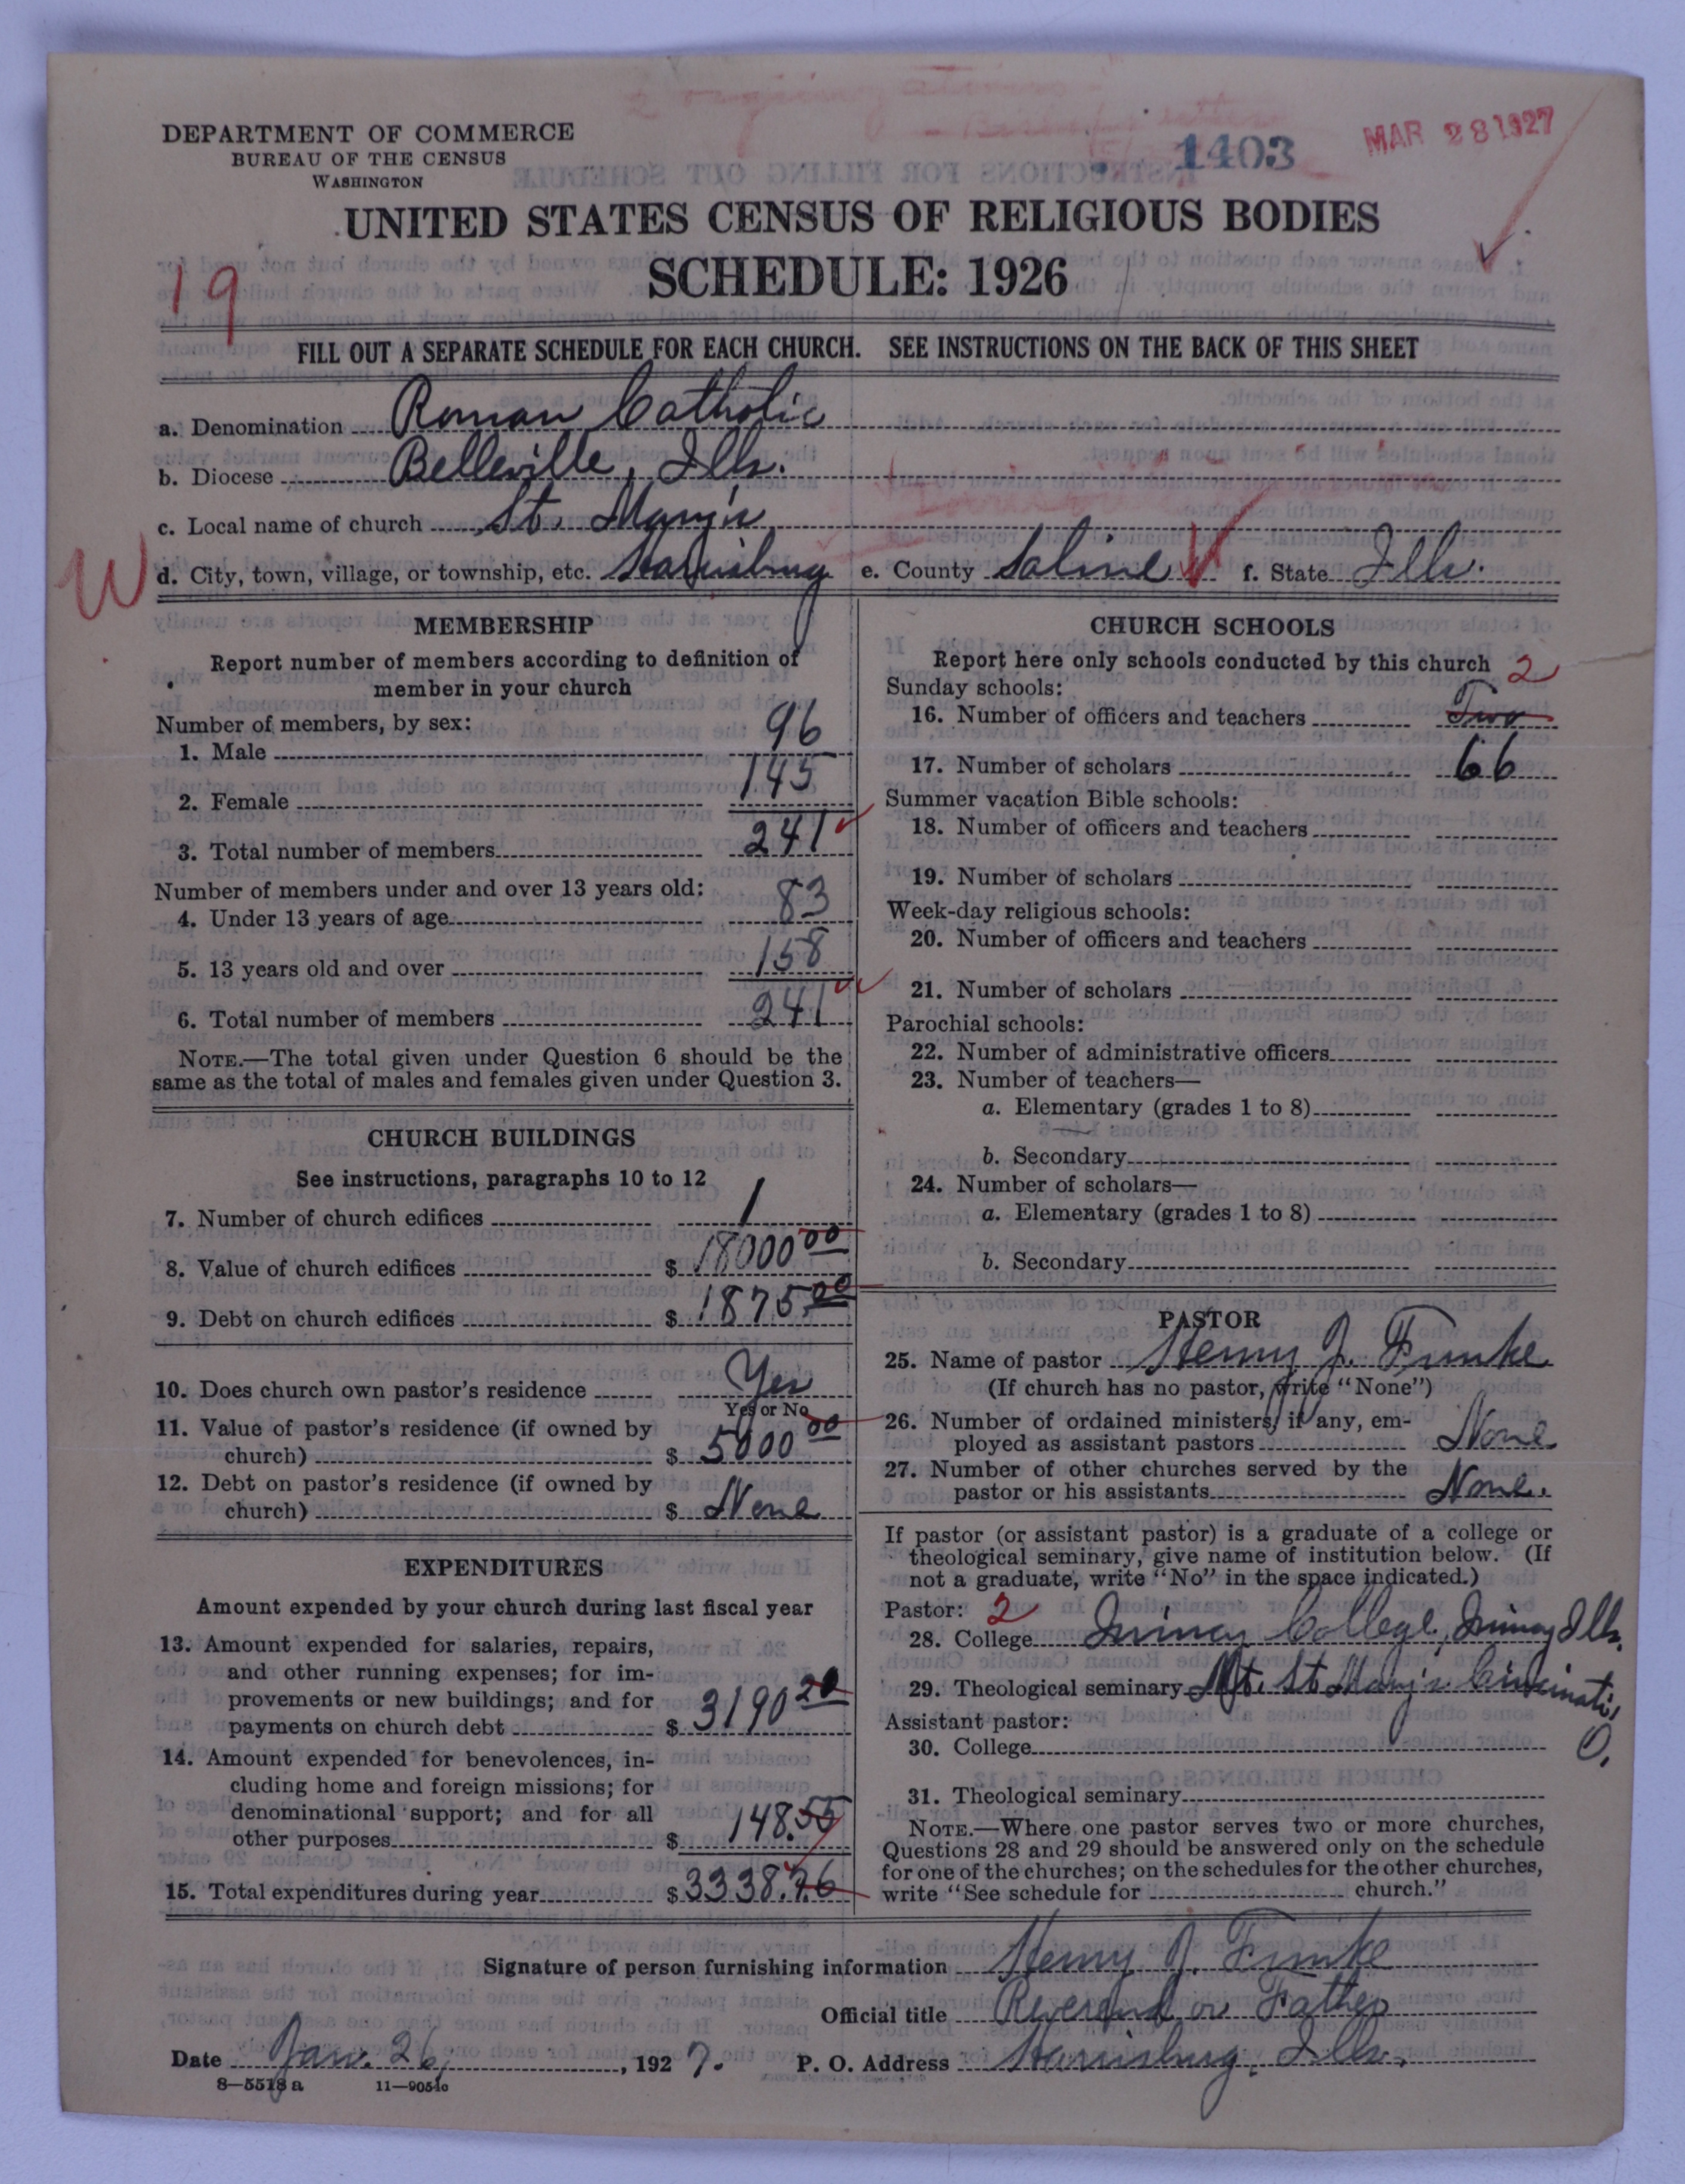 DEPARTMENT OF COMMERCE
BUREAU OF THE CENSUS
WASHINGTON
1403
MAR 28 1927
UNITED STATES CENSUS OF RELIGIOUS BODIES
SCHEDULE: 1926
19
FILL OUT A SEPARATE SCHEDULE FOR EACH CHURCH. SEE INSTRUCTIONS ON THE BACK OF THIS SHEET
a. Denomination Roman Catholic
b. Diocese Belleville, Ills.
c. Local name of church St. Mary's
W
d. City, town, village, or township, etc. Harrisburg e. County Saline f. State Ills.
MEMBERSHIP
Report number of members according to definition of
member in your church
Number of members, by sex:
1. Male 96
2. Female 145
3. Total number of members 241
Number of members under and over 13 years old:
4. Under 13 years of age 83
5. 13 years old and over 158
6. Total number of members 241
NOTE.—The total given under Question 6 should be the
same as the total of males and females given under Question 3.
CHURCH BUILDINGS
See instructions, paragraphs 10 to 12
7. Number of church edifices 1
8. Value of church edifices $ 18000 00
9. Debt on church edifices $ 1875.00
10. Does church own pastor's residence Yes
Yes or No
11. Value of pastor's residence (if owned by
church) $ 5000 00
12. Debt on pastor's residence (if owned by
church) $ None
EXPENDITURES
Amount expended by your church during last fiscal year
13. Amount expended for salaries, repairs,
and other running expenses; for im-
provements or new buildings; and for
payments on church debt $ 3190 20
14. Amount expended for benevolences, in-
cluding home and foreign missions; for
denominational support; and for all
other purposes $ 148.55
15. Total expenditures during year $ 3338.76
CHURCH SCHOOLS
Report here only schools conducted by this church 2
Sunday schools:
16. Number of officers and teachers Two
17. Number of scholars 66
Summer vacation Bible schools:
18. Number of officers and teachers
19. Number of scholars
Week-day religious schools:
20. Number of officers and teachers
21. Number of scholars
Parochial schools:
22. Number of administrative officers
23. Number of teachers—
a. Elementary (grades 1 to 8)
b. Secondary
24. Number of scholars—
a. Elementary (grades 1 to 8)
b. Secondary
PASTOR
25. Name of pastor Henry J. Funke
(If church has no pastor, write "None")
26. Number of ordained ministers, if any, em-
ployed as assistant pastors None
27. Number of other churches served by the
pastor or his assistants None.
If pastor (or assistant pastor) is a graduate of a college or
theological seminary, give name of institution below. (If
not a graduate, write "No" in the space indicated.)
Pastor: 2
28. College Quincy College, Quincy Ills.
29. Theological seminary Mt. St Mary's Cincinnati,
O.
Assistant pastor:
30. College
31. Theological seminary
NOTE.—Where one pastor serves two or more churches,
Questions 28 and 29 should be answered only on the schedule
for one of the churches; on the schedules for the other churches,
write "See schedule for church."
Signature of person furnishing information Henry J. Funke
Official title Reverend or Father
Date Jan. 26, 1927. P. O. Address Harrisburg, Ills.
8—5518 a 11—9051c